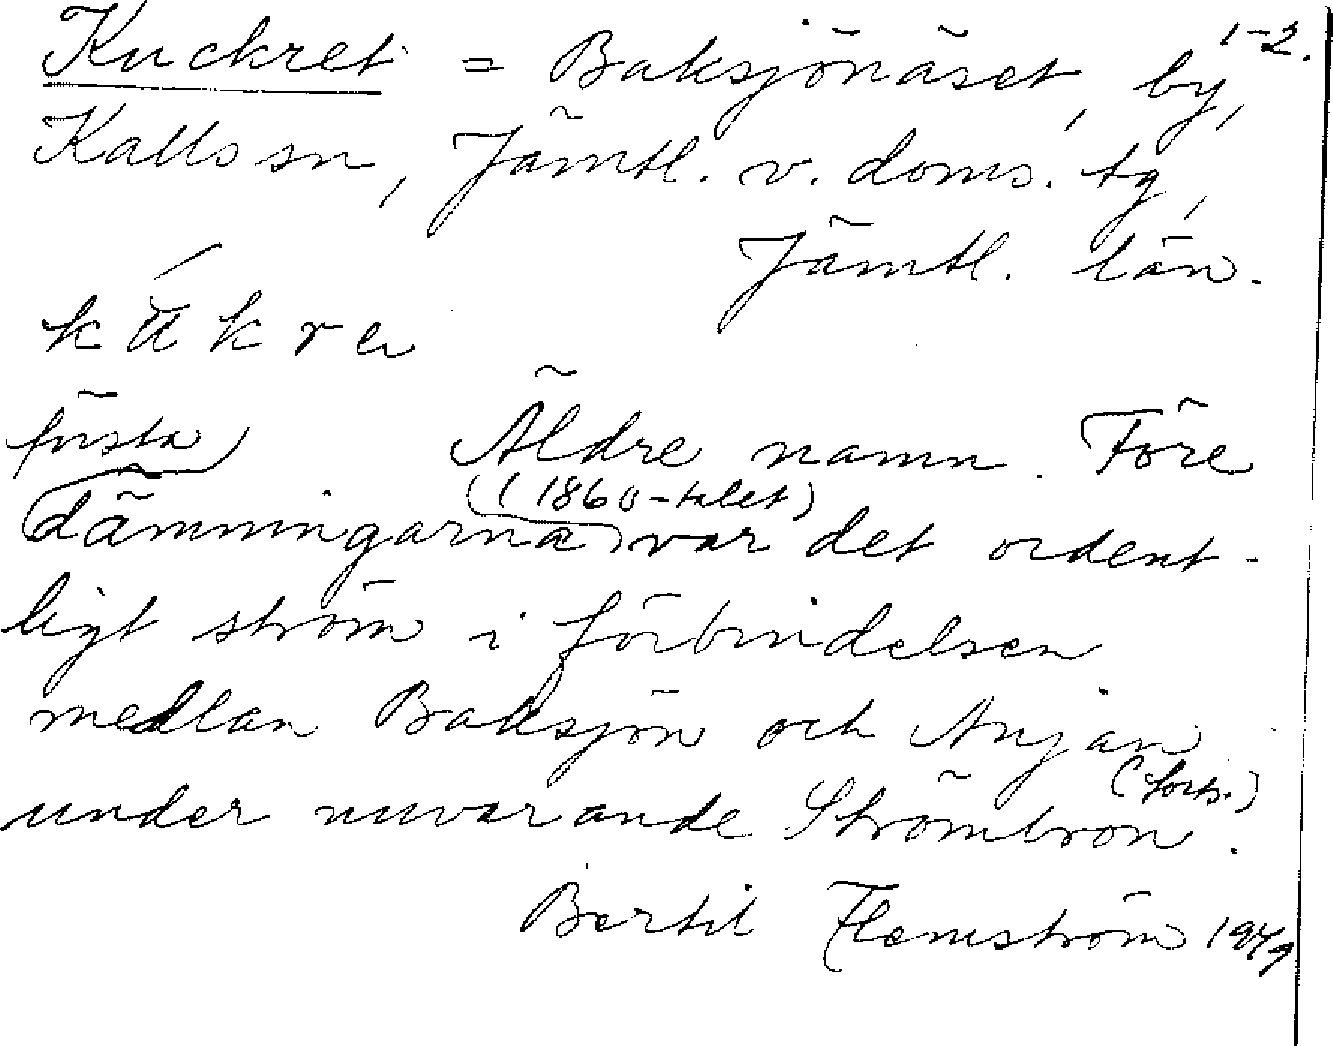 1-2.
Kuckret = Baksjönäset, by,
Kalls sn, Jämtl. v. doms. tg,
Jämtl. län.
Äldre namn. Före
första
dämningarna (1860-talet) var det ordent-
ligt ström i förbindelsen
mellan Baksjön och Anjan
under nuvarande Strömbron.
(forts.)
Bertil Flemström 1979